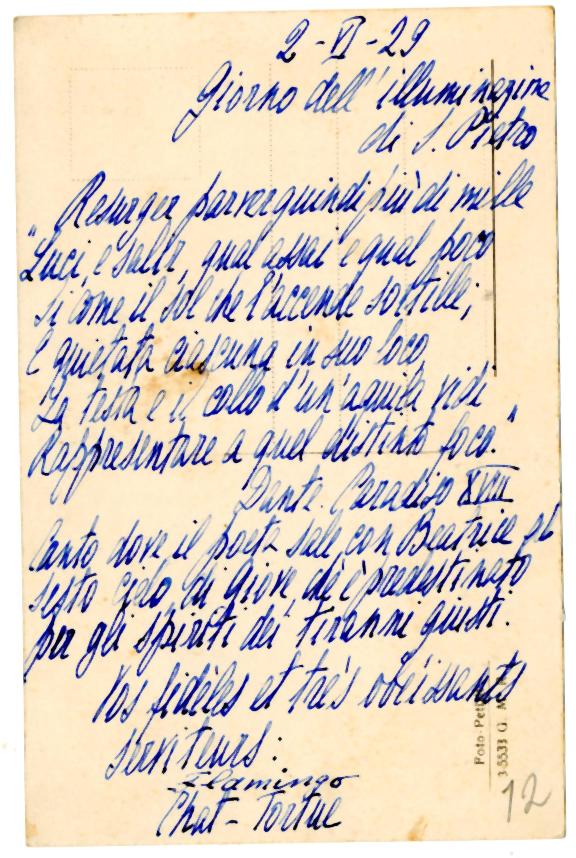 2-VI-29
Giorno dell'illuminazione
di S. Pietro
Resurger parver quindi più di mille
"Luci, e salir, qual assai e qual poco
Sì come il sol che l'accende sortille;
E quietata ciascuna in suo loco
La testa e il collo d'un'aquila vidi
Rappresentare a quel distinto foco."
Dante. Paradiso XVIII
Canto dove il poeta sale con Beatrice al
sesto cielo di Giove, che è predestinato
per gli spiriti dei tiranni giusti.
Vos fidèles et très obéissants
serviteurs:
Flamingo
Chat-Tortue
Foto-Pet
35533 G. M
12